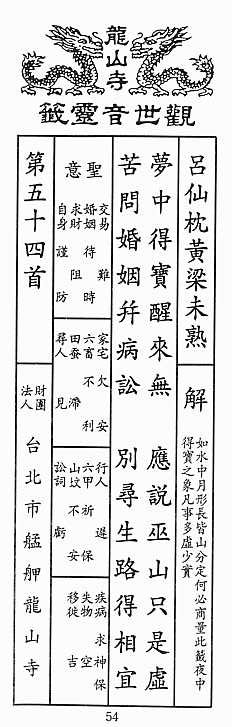 龍山寺
觀世音靈籤
呂仙枕黃梁未熟
解
如水中月形長皆山分定何必商量此籤夜中
得寶之象凡事多虛少實
夢中得寶醒來無 應說巫山只是虛
苦問婚姻并病訟 別尋生路得相宜
聖意
交易 難
婚姻 待時
求財 阻
自身 謹防
家宅 欠安
六畜 不利
田蚕 滯
尋人 見
行人 遲
六甲 祈保
山坟 不安
訟詞 虧
疾病 求神保
失物 空
移徙 吉
第五十四首
財團
法人
台北市艋舺龍山寺
54